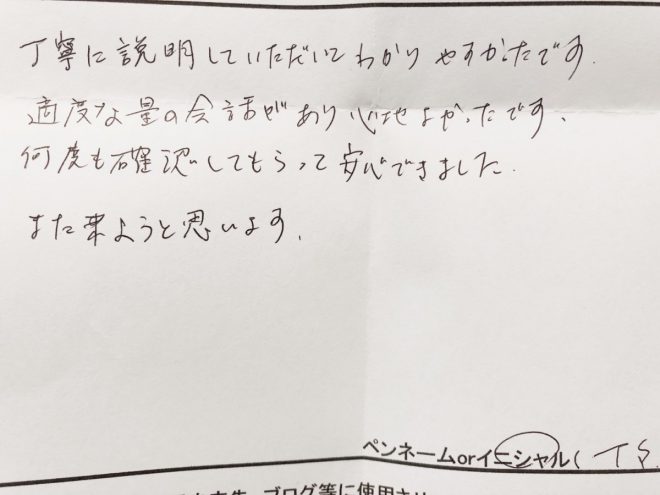 丁寧に説明していただいてわかりやすかったです.
適度な量の会話があり心地よかったです、
何度も確認してもらって安心できました.
また来ようと思います.
ペンネームorイニシャル( T.S.
ブログ等に使用させ